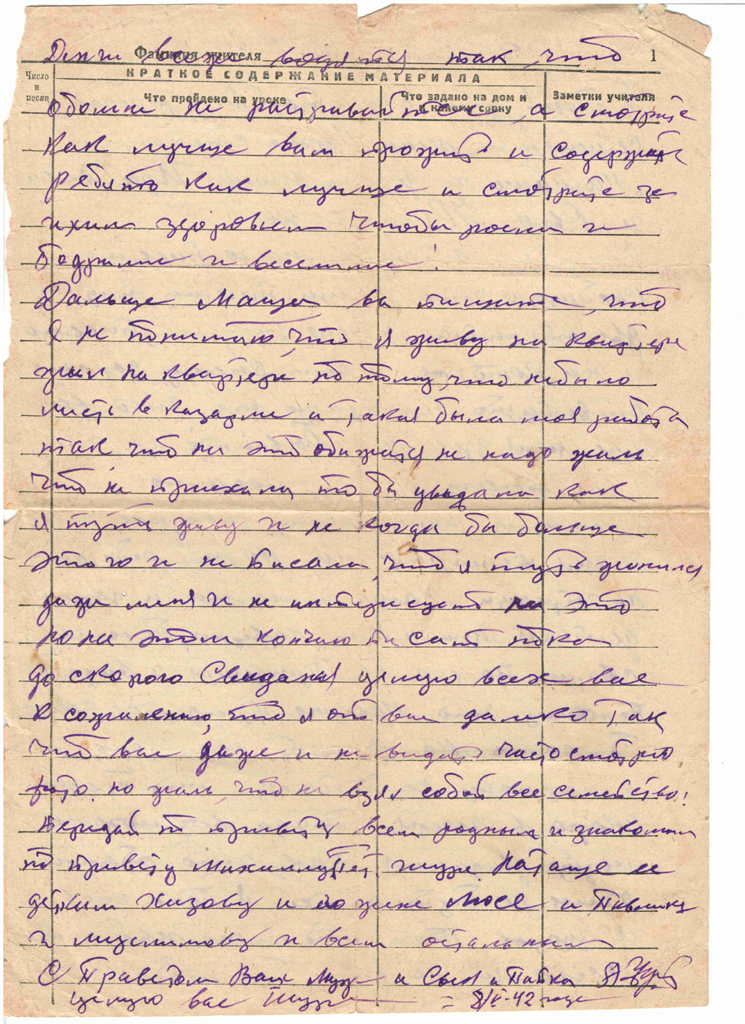 Деньги всегда водятся так, что
Фамилия учителя 1
Число и месяц
КРАТКОЕ СОДЕРЖАНИЕ МАТЕРИАЛА
Что пройдено на уроке
Что задано на дом и к какому сроку
Заметки учителя
обомне не растраивайтесь, а смотрите
как лучше вам прожить и содержать
ребято как лучше и смотрите за
ихим здоровьем чтобы росли и
бодрыми и веселыми!
Дальше Маша вы пишите, что
я не понимаю, что я живу на квартере
жил на квартере потому, что небыло
места в казарме и такая была моя работа
так что на это обижатся не надо жаль
что не приехала то бы увидала как
я тут живу и не когда бы больше
этого и не писала, что я тут женился
даже меня и не интерисует на это
но на этом кончаю писать пока
до скорого Свидания целую всех вас
к сожалению, что я от вас далеко так
что вас даже и не видать часто смотрю
фото. но жаль, что не взял собой все семейство!
Передай по привету всем родным и знакомым
по привету Наташе ее
деткам и жене Люсе и Павлику
и Муслимову и всем остальным
С Приветом Ваш Муж и Сын и Папка
целую вас - 42 года